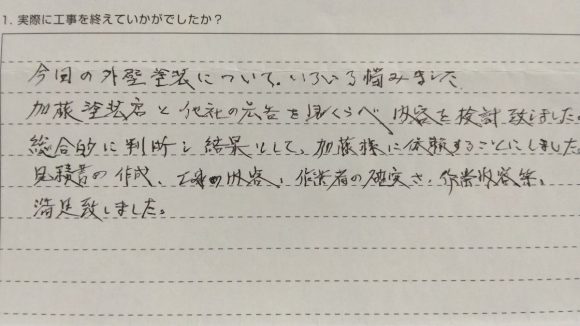 1. 実際に工事を終えていかがでしたか？
今回の外壁塗装について。いろいろ悩みました
加藤塗装店と他社の広告を見くらべ、内容を検討致しました。
総合的に判断し結果として、加藤様に依頼することにしました。
見積書の作成、工事の内容、作業者の確実さ、作業内容等、
満足致しました。